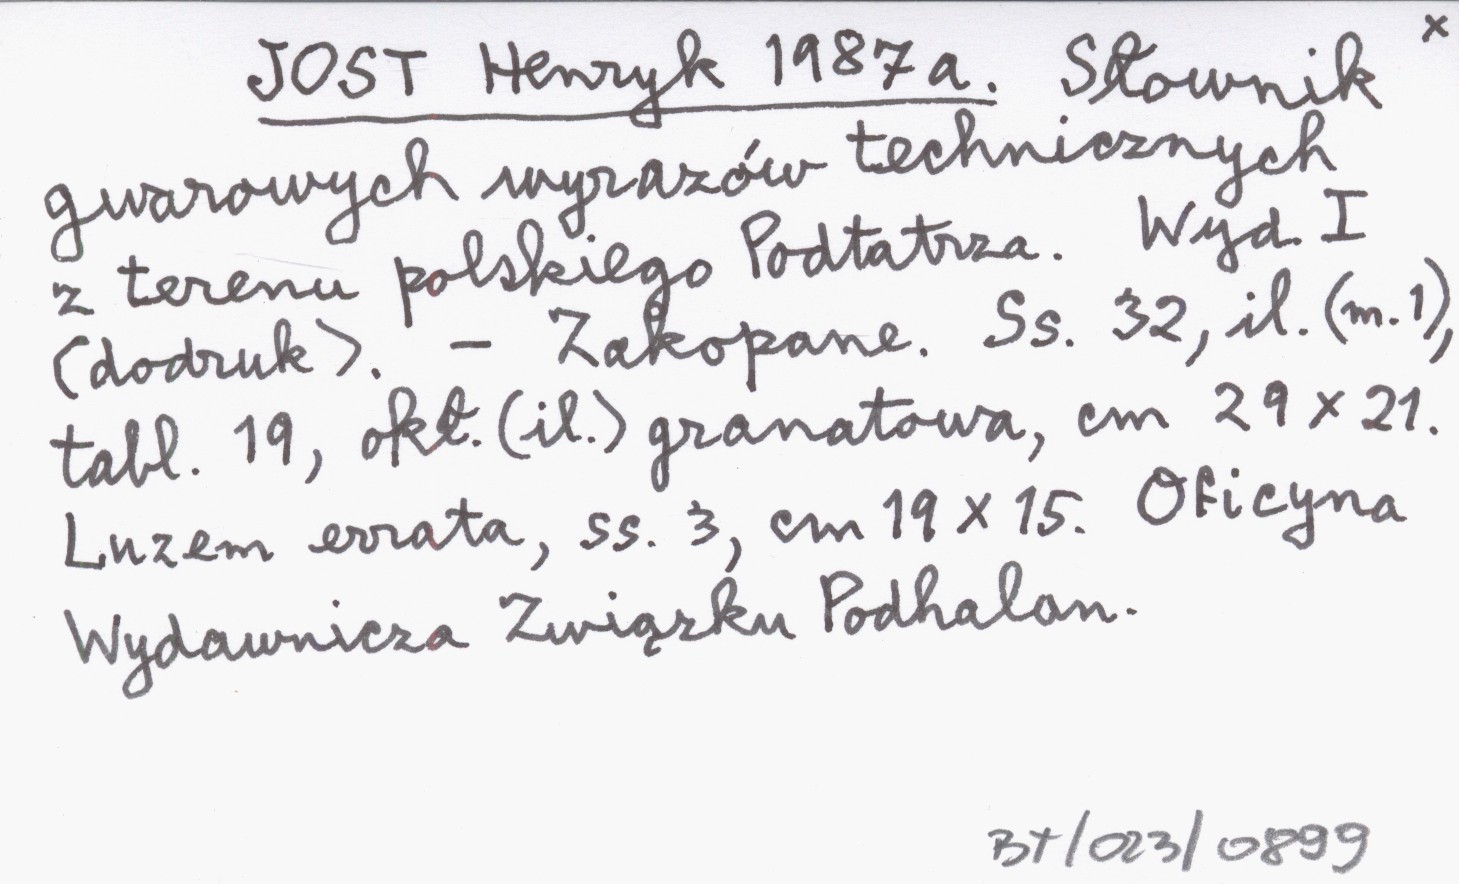 JOST Henryk 1987a. Słownik x
gwarowych wyrazów technicznych
z terenu polskiego Podtatrza. Wyd. I
(dodruk). - Zakopane. Ss. 32, il. (m. 1),
tabl. 19, okł. (il.) granatowa, cm 29 x 21.
Luzem errata, ss. 3, cm 19 x 15. Oficyna
Wydawnicza Związku Podhalan.
BT/023/0899